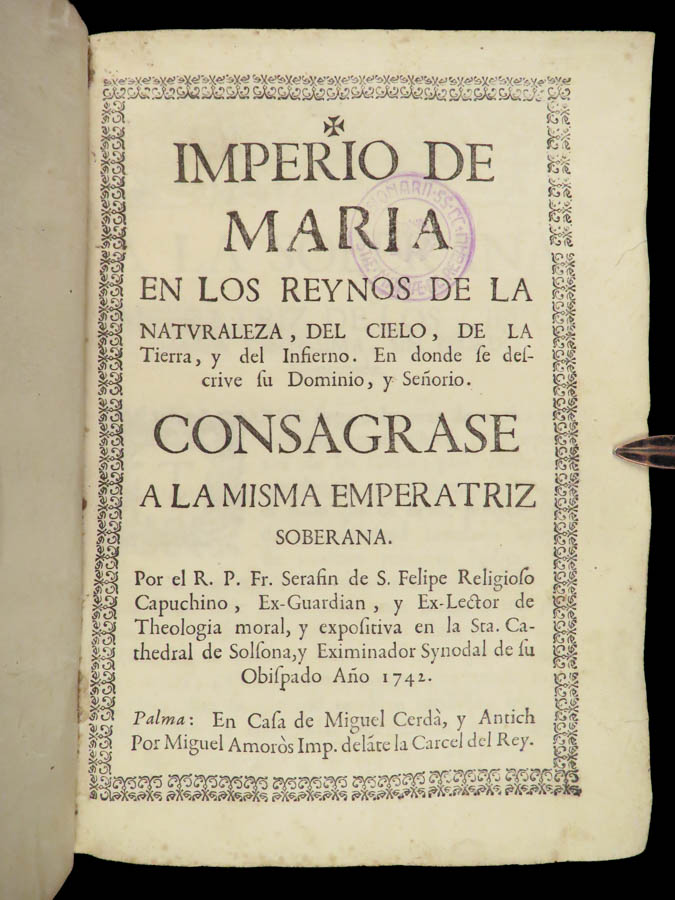 ✠
IMPERIO DE
MARIA
EN LOS REYNOS DE LA
NATVRALEZA, DEL CIELO, DE LA
Tierra, y del Infierno. En donde ſe deſ-
crive ſu Dominio, y Señorio.
CONSAGRASE
A LA MISMA EMPERATRIZ
SOBERANA.
Por el R. P. Fr. Serafin de S. Felipe Religioſo
Capuchino, Ex-Guardian, y Ex-Lector de
Theologia moral, y expoſitiva en la Sta. Ca-
thedral de Solſona, y Eximinador Synodal de ſu
Obiſpado Año 1742.
Palma: En Caſa de Miguel Cerdà, y Antich
Por Miguel Amoròs Imp. delãte la Carcel del Rey.